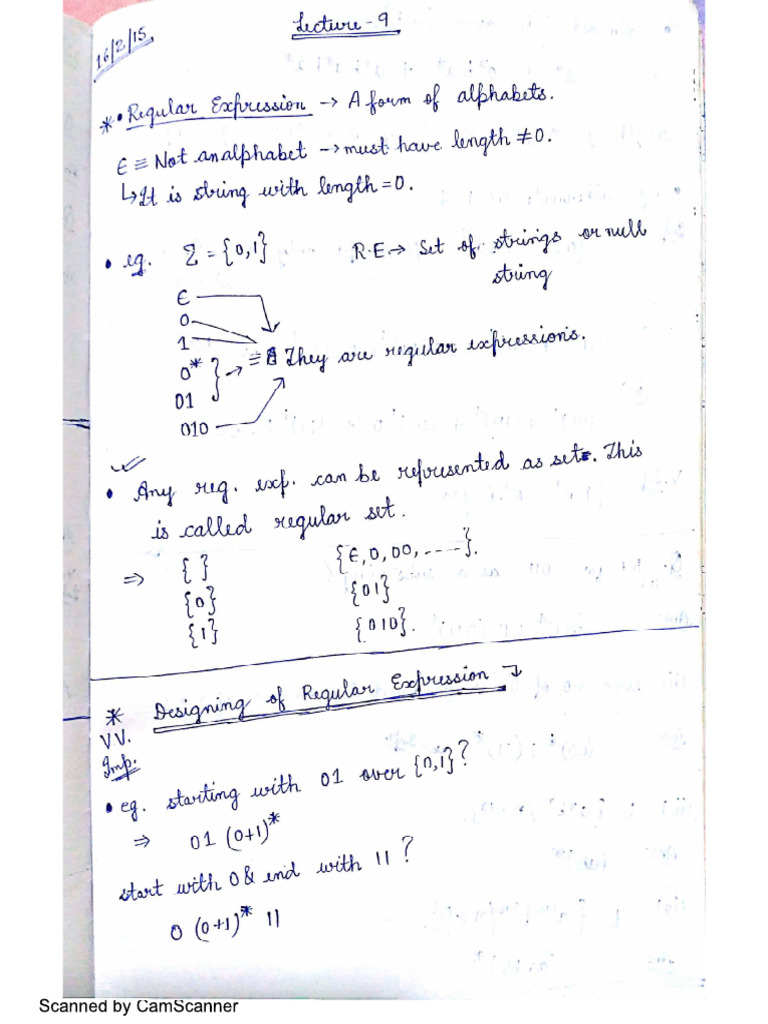 Lecture-9
16/2/15.
*• Regular Expression → A form of alphabets.
ϵ ≡ Not an alphabet → must have length ≠ 0.
↳ It is string with length = 0.
• eg. Σ = {0,1} R.E → Set of strings or null
string
ϵ
0
1
0*
01
010
≡ They are regular expressions.
• Any reg. exp. can be represented as set. This
is called regular set.
⇒ { } {ϵ, 0, 00, -----}.
{0} {01}
{1} {010}.
* Designing of Regular Expression ↴
VV.
Imp.
• eg. starting with 01 over {0,1}?
⇒ 01 (0+1)*
start with 0 & end with 11?
0 (0+1)* 11
Scanned by CamScanner